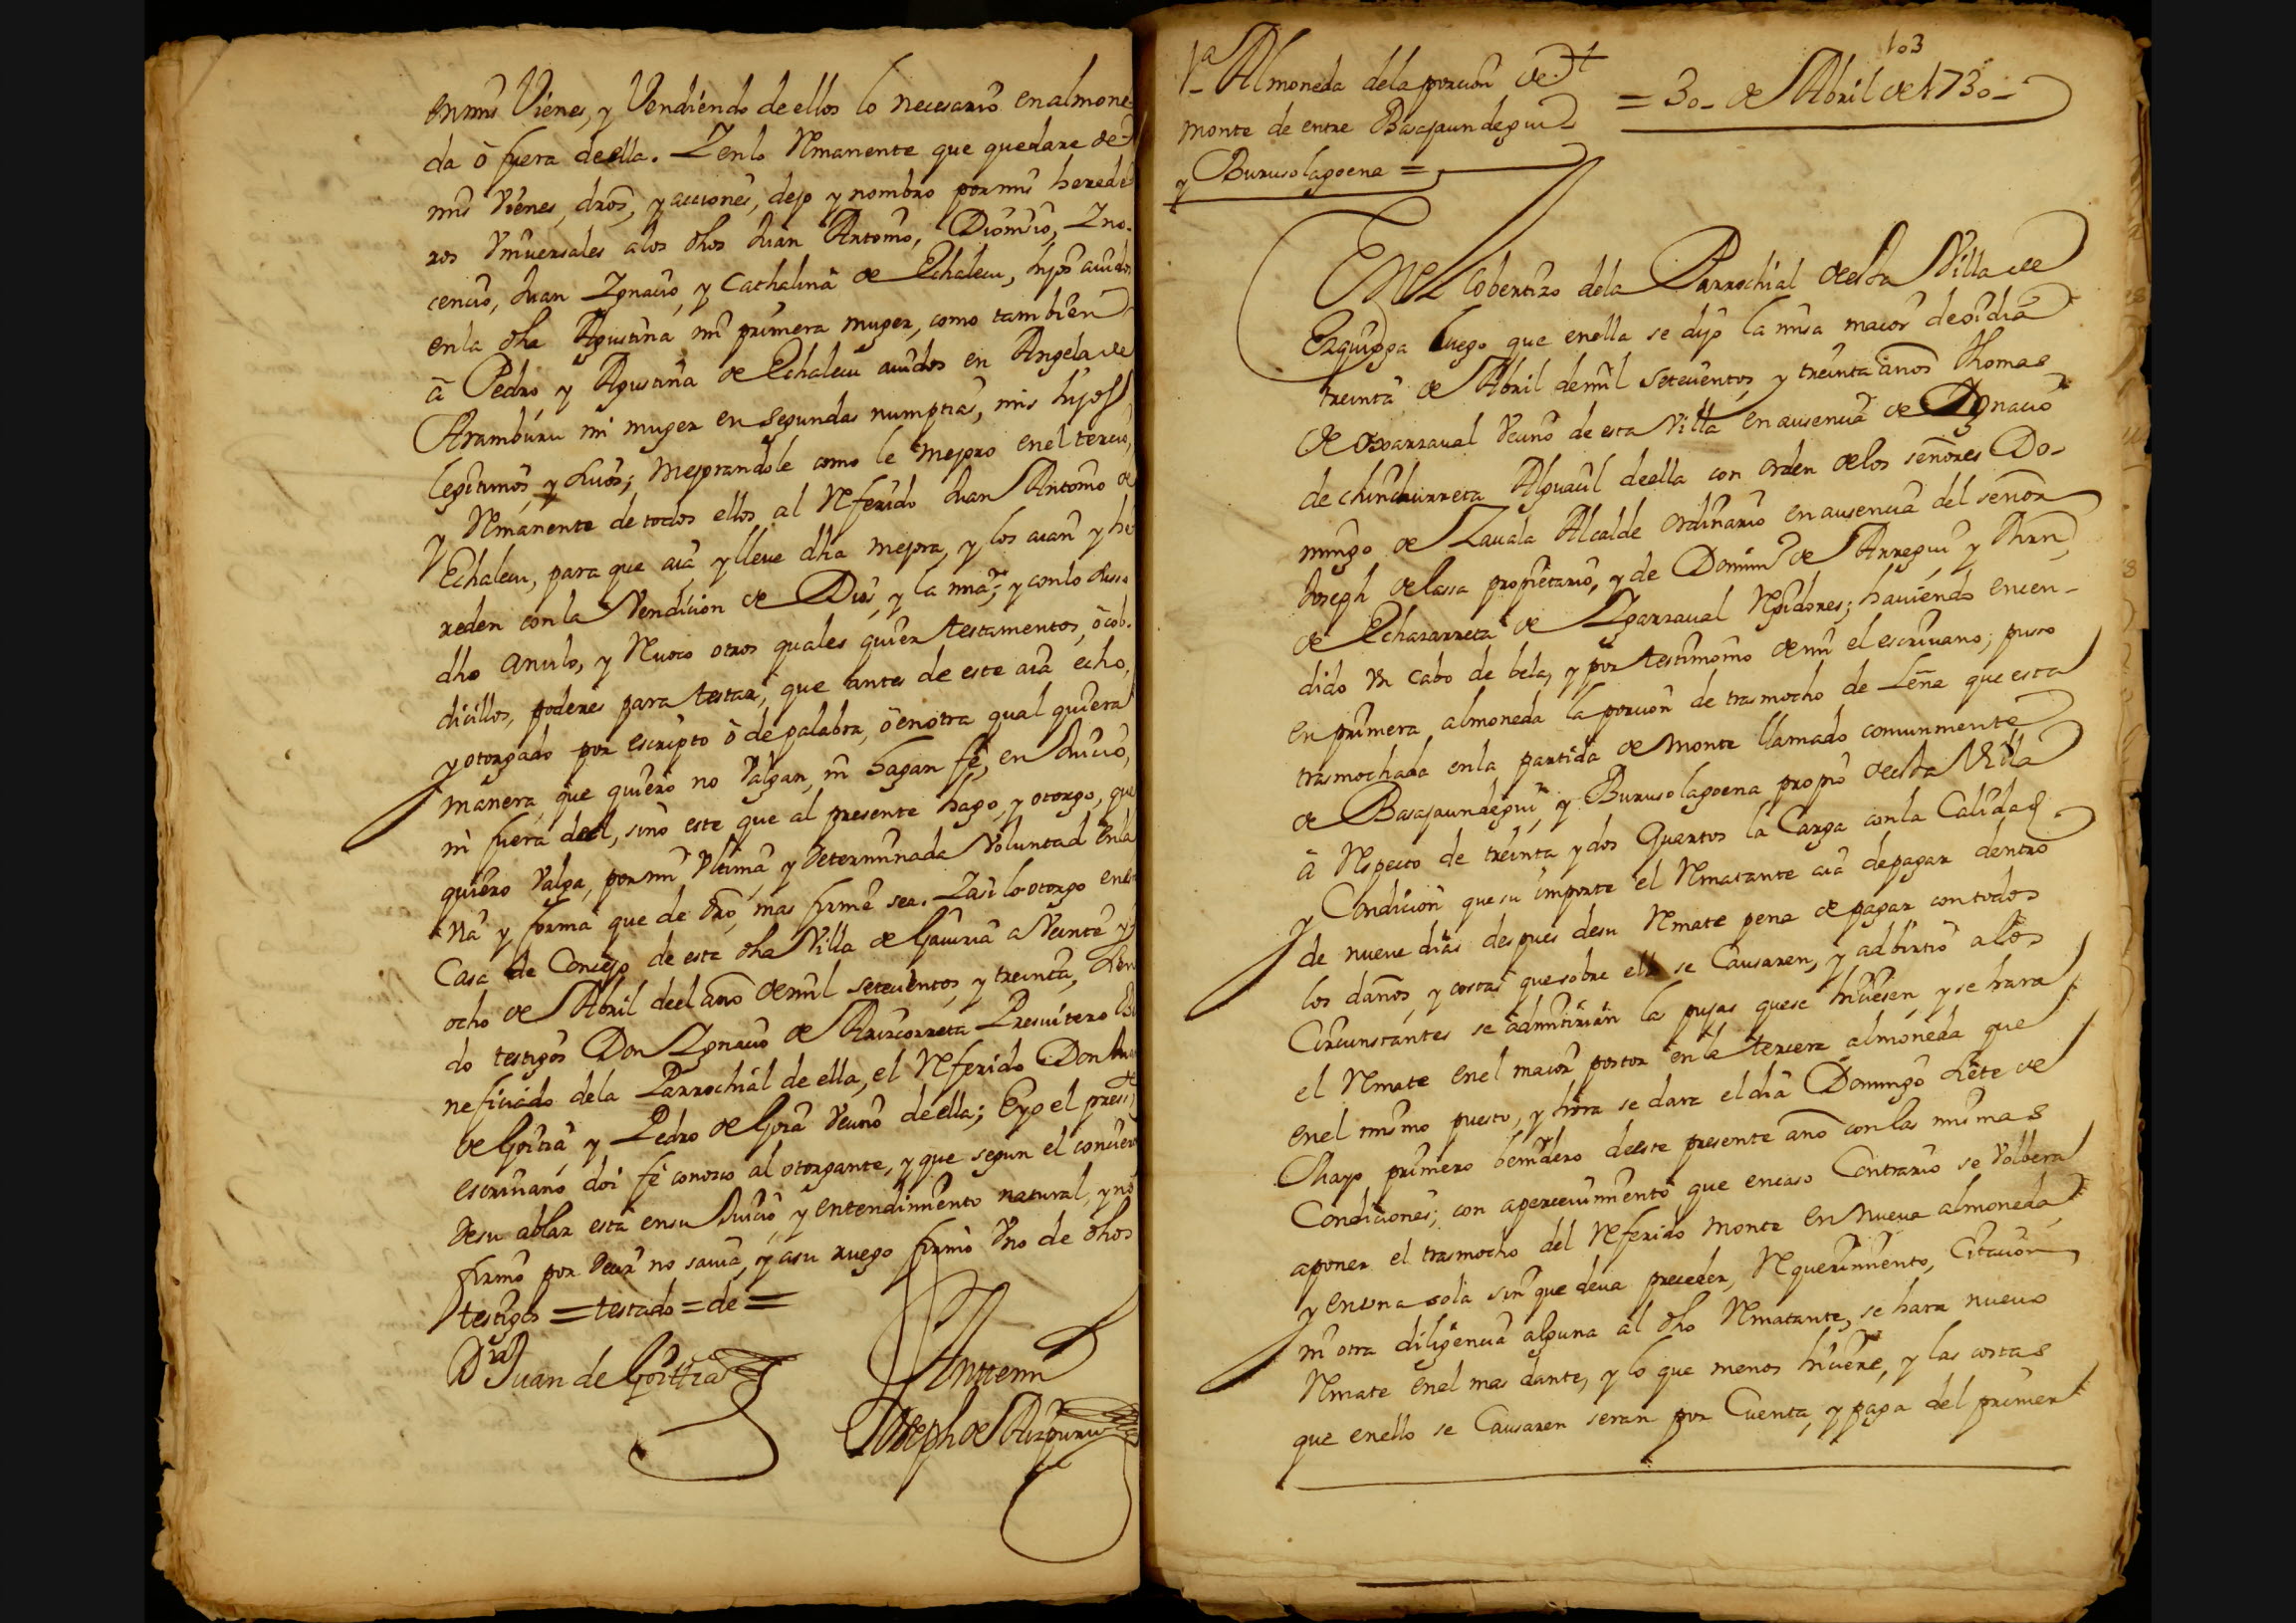 en mis Vienes, y Vendiendo de ellos lo necesario en almone-
da ò fuera de ella. Y en lo Remanente que quedare de
mis Vienes, dros, y acciones, dejo y nombro por mis herede
ros Vniversales a los dhos Juan Antonio, Dionisio, Yno-
cencio, Juan Ygnacio, y Cathalina de Echaleu, hijos auidos
en la dha Agustina mi primera muger, como tambien
à Pedro y Agustina de Echaleu auidos en Angela de
Aramburu mi muger en segundas numptias, mis hijos
legitimos, y suios; mejorandole como le mejoro en el tercio,
y Remanente de todos ellos al Referido Juan Antonio de
Echaleu, para que aia y lleue dha mejora, y los aian y he
reden con la Vendicion de Dios y la mia; y con lo suso
dho anulo, y Reuoco otros quales quier testamentos, ò cob-
dicillos, poderes para testar, que antes de este aia echo,
y otorgado por escripto ò de palabra, ò en otra qual quiera
manera, que quiero no Valgan, ni hagan fè, en Juicio,
ni fuera de el, sino este que al presente hago, y otorgo, que
quiero Valga, por mi Vltima, y determinada Voluntad en la
Via y forma que de dro, mas firme sea. Y asi lo otorgo en
Casa de Concejo de esta dha Villa de Gauiria a Veinte y
ocho de Abril de el año de mil setecientos, y treinta, sien
do testigos Don Ygnacio de Ariscorreta Presuitero Be
neficiado de la Parrochial de ella, el Referido Don Juan
de Goitia y Pedro de Goia Vecino de ella; E yo el press.te
escriuano doi fè conosco al otorgante, y que segun el concier
de su ablar està en su Juicio, y entendimiento natural, y no
firmò por decir no sauia, y a su ruego firmò Vno de dhos
testigos = testado = de =
Dn Juan de Goittia
Ante mi
Joseph de Aizpuru
103
1ª Almoneda de la porcion de
monte de entre Basajaundegui
y Burusolagoena =
= 30 - de Abril de 1730 -
En el Cobertizo de la Parrochial de esta Villa de
Ezquioga luego que en ella se dijo la misa maior de oi dia
treinta de Abril de mil setecientos, y treinta años Thomas
de Vecino de esta Villa en ausencia de Ygnacio
de chinchurreta Alguacil de ella con orden de los señores Do-
mingo de Zauala Alcalde ordinario en ausencia del señor
Joseph de lassa propietario, y de Domin.º de Arregui y
de Echazarreta de Ygarzaual Regidores; hauiendo encen-
dido vn cabo de bela, y por testimonio de mi el escriuano, puso
en primera almoneda la porcion de trasmocho de Leña que esta
trasmochada en la partida de monte llamado comunmente
de Basajaundegui, y Burusolagoena propio de esta Villa
à Respecto de treinta y dos Quartos la Carga con la Calidad
y Condicion que su importe el Rematante aia de pagar dentro
de nueue dias despues de su Remate pena de pagar con todos
los daños, y costas que sobre ello se Causaren, y adbirtio a los
Circunstantes se admitirian las pujas que se hiciesen y se hara
el Remate en el maior postor en la tercera almoneda que
en el mismo puesto, y hora se dara el dia Domingo siete de
Mayo primero benidero de este presente año con las mismas
Condiciones; con aperceuimiento que en caso Contrario se Volbera
a poner el trasmocho del Referido monte en nueua almoneda
y en vna sola sin que deua preceder, Requerimiento, Citacion
ni otra diligencia alguna al dho Rematante, se hara nueuo
Remate en el mas dante, y lo que menos hiciere, y las costas
que en ello se Causaren seran por Cuenta, y paga del primer